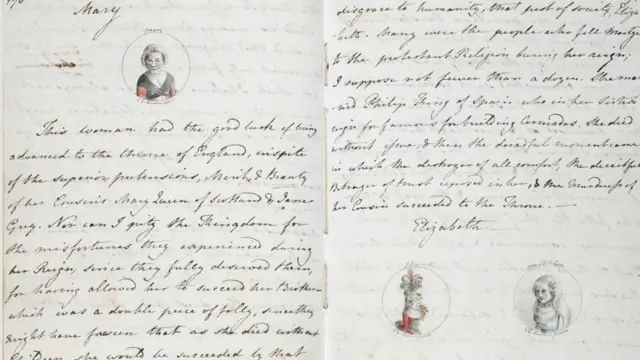 Mary
This woman had the good luck of being
advanced to the throne of England, inspite
of the superior pretensions, Merit & Beauty
of her Cousins Mary Queen of Scotland & Jane
Grey. Nor can I pity the Kingdom for
the misfortunes they experienced during
her Reign, since they fully deserved them,
for having allowed her to succeed her Brother
which was a double peice of folly, since they
might have foreseen that as she died without
Children, she would be succeeded by that
disgrace to humanity, that pest of society, Eliza
-beth. Many were the people who fell Martyrs
to the protestant Religion during her reign;
I suppose not fewer than a dozen. She mar
-ried Philip King of Spain who in her Sister's
reign for famous for building Armadas. She died
without issue, & then the dreadful moment came
in which the destroyer of all comfort, the deceitful
Betrayer of trust reposed in her, & the Murderess of
her Cousin succeeded to the Throne.—
Elizabeth—